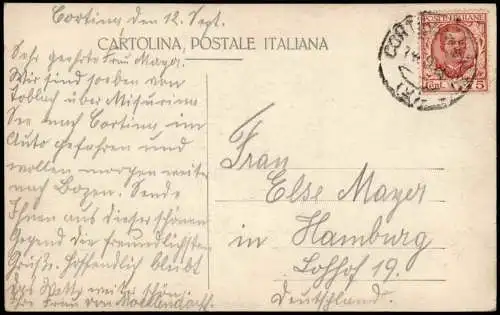 Cortina, den 12. Sept.
CARTOLINA POSTALE ITALIANA
Sehr geehrte Frau Mayer.
Wir sind soeben von
Toblach über Misurina
See nach Cortina im
Auto gefahren und
wollen morgen weiter
nach Bozen. Sende
Ihnen aus dieser schönen
Gegend die freundlichsten
Grüße. Hoffentlich bleibt
das Wetter weiter schön.
Ihre Frau
POSTE ITALIANE
CORT
Frau
Else Mayer
in Hamburg
Lohhof 19.
Deutschland.